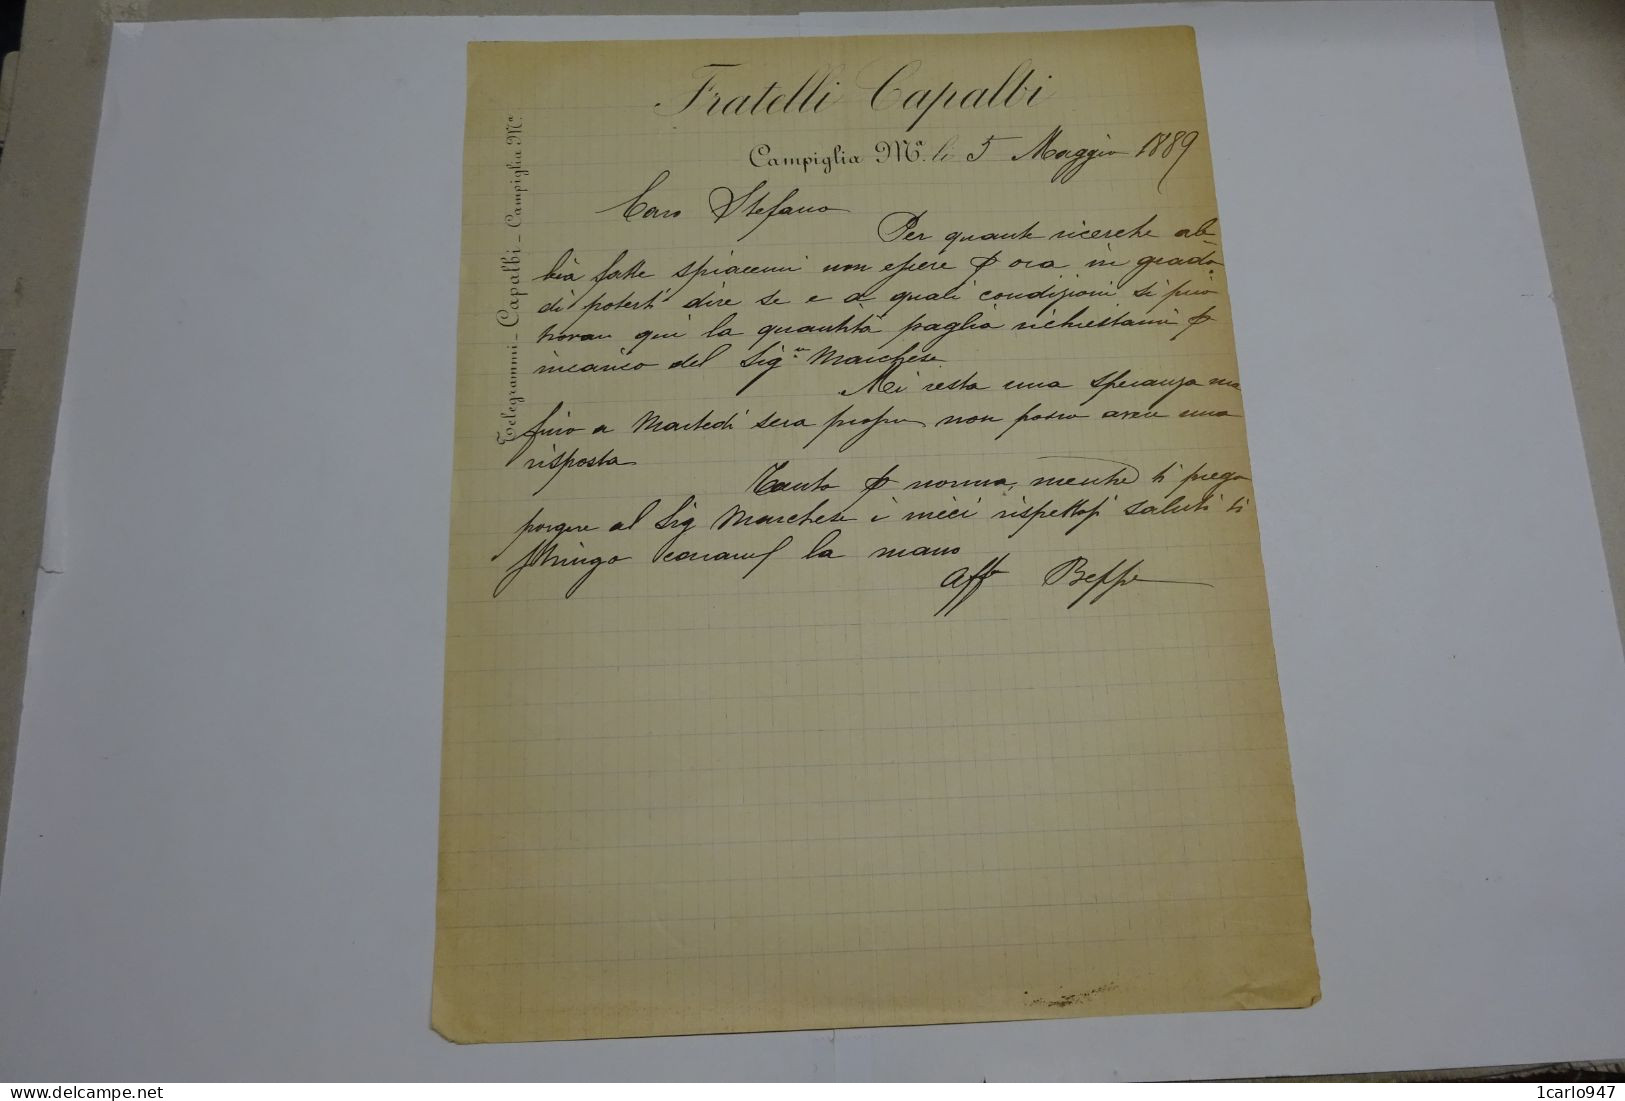 Fratelli Capalbi
Campiglia Mª. li 5 Maggio 1889
Telegrammi - Capalbi - Campiglia Mª.
Caro Stefano
Per quante ricerche ab-
bia fatte spiacemi non essere p ora in grado
di poterti dire se e a quali condizioni si può
trovare qui la quantità paglia richiestami p
incarico del Sigʳ Marchese
Mi resta una speranza ma
fino a Martedi sera proprio non posso avere una
risposta
Tanto p norma, mentre ti prego
porgere al Sig Marchese i miei rispettosi saluti ti
stringo la mano
Affo Beppe
delcampe.net
1carlo947